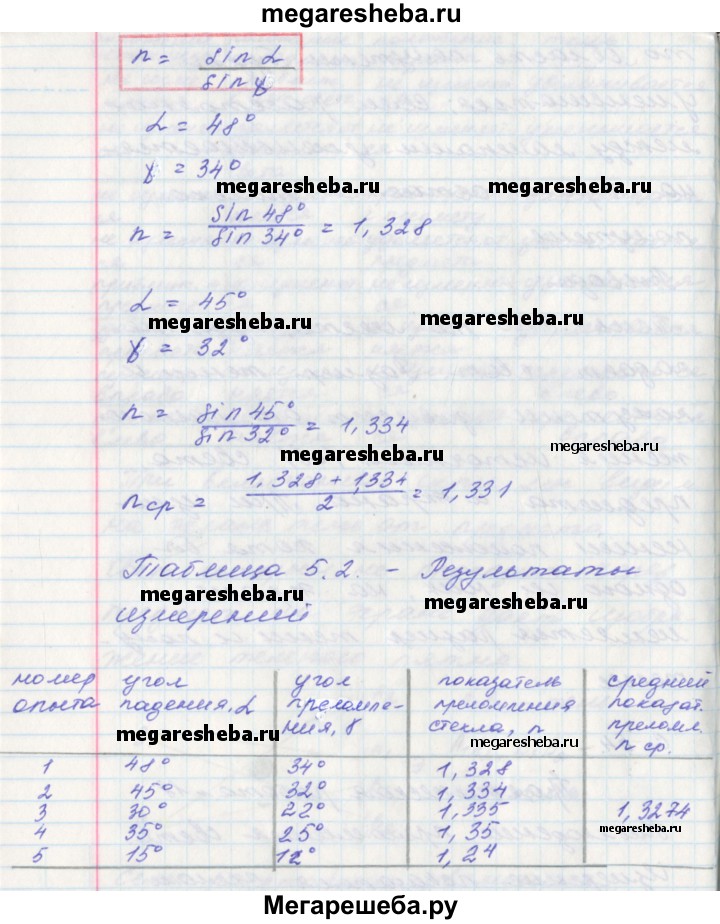 megaresheba.ru
n = sin α / sin γ
α = 48°
γ = 34°
megaresheba.ru megaresheba.ru
n = sin 48° / sin 34° = 1,328
α = 45°
megaresheba.ru megaresheba.ru
γ = 32°
n = sin 45° / sin 32° = 1,334
megaresheba.ru
n ср = 1,328 + 1334 / 2 = 1,331
Таблица 5.2. - Результаты
megaresheba.ru megaresheba.ru
измерений
номер опыта | угол падения, α | угол преломле-ния, γ | показатель преломления стекла, n | средний показат. преломл. n ср.
megaresheba.ru megaresheba.ru
1 48° 34° 1,328
2 45° 32° 1,334
3 30° 22° 1,335 1,3274
4 35° 25° 1,35
megaresheba.ru
5 15° 12° 1,24
Мегарешеба.ру